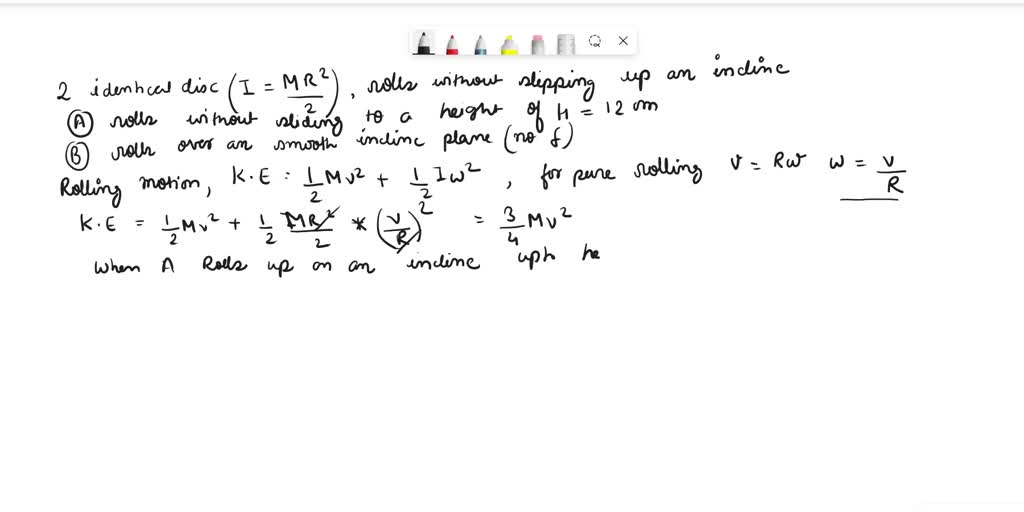 2 identical disc (I = MR²/2), rolls without slipping up an incline
(A) rolls without sliding to a height of H = 12 m
(B) rolls over an smooth incline plane (no f)
Rolling motion, K.E = 1/2 Mv² + 1/2 Iω², for pure rolling v = Rω ω = v/R
K.E = 1/2 Mv² + 1/2 MR²/2 * (v/R)² = 3/4 Mv²
When A Rolls up on an incline upto he